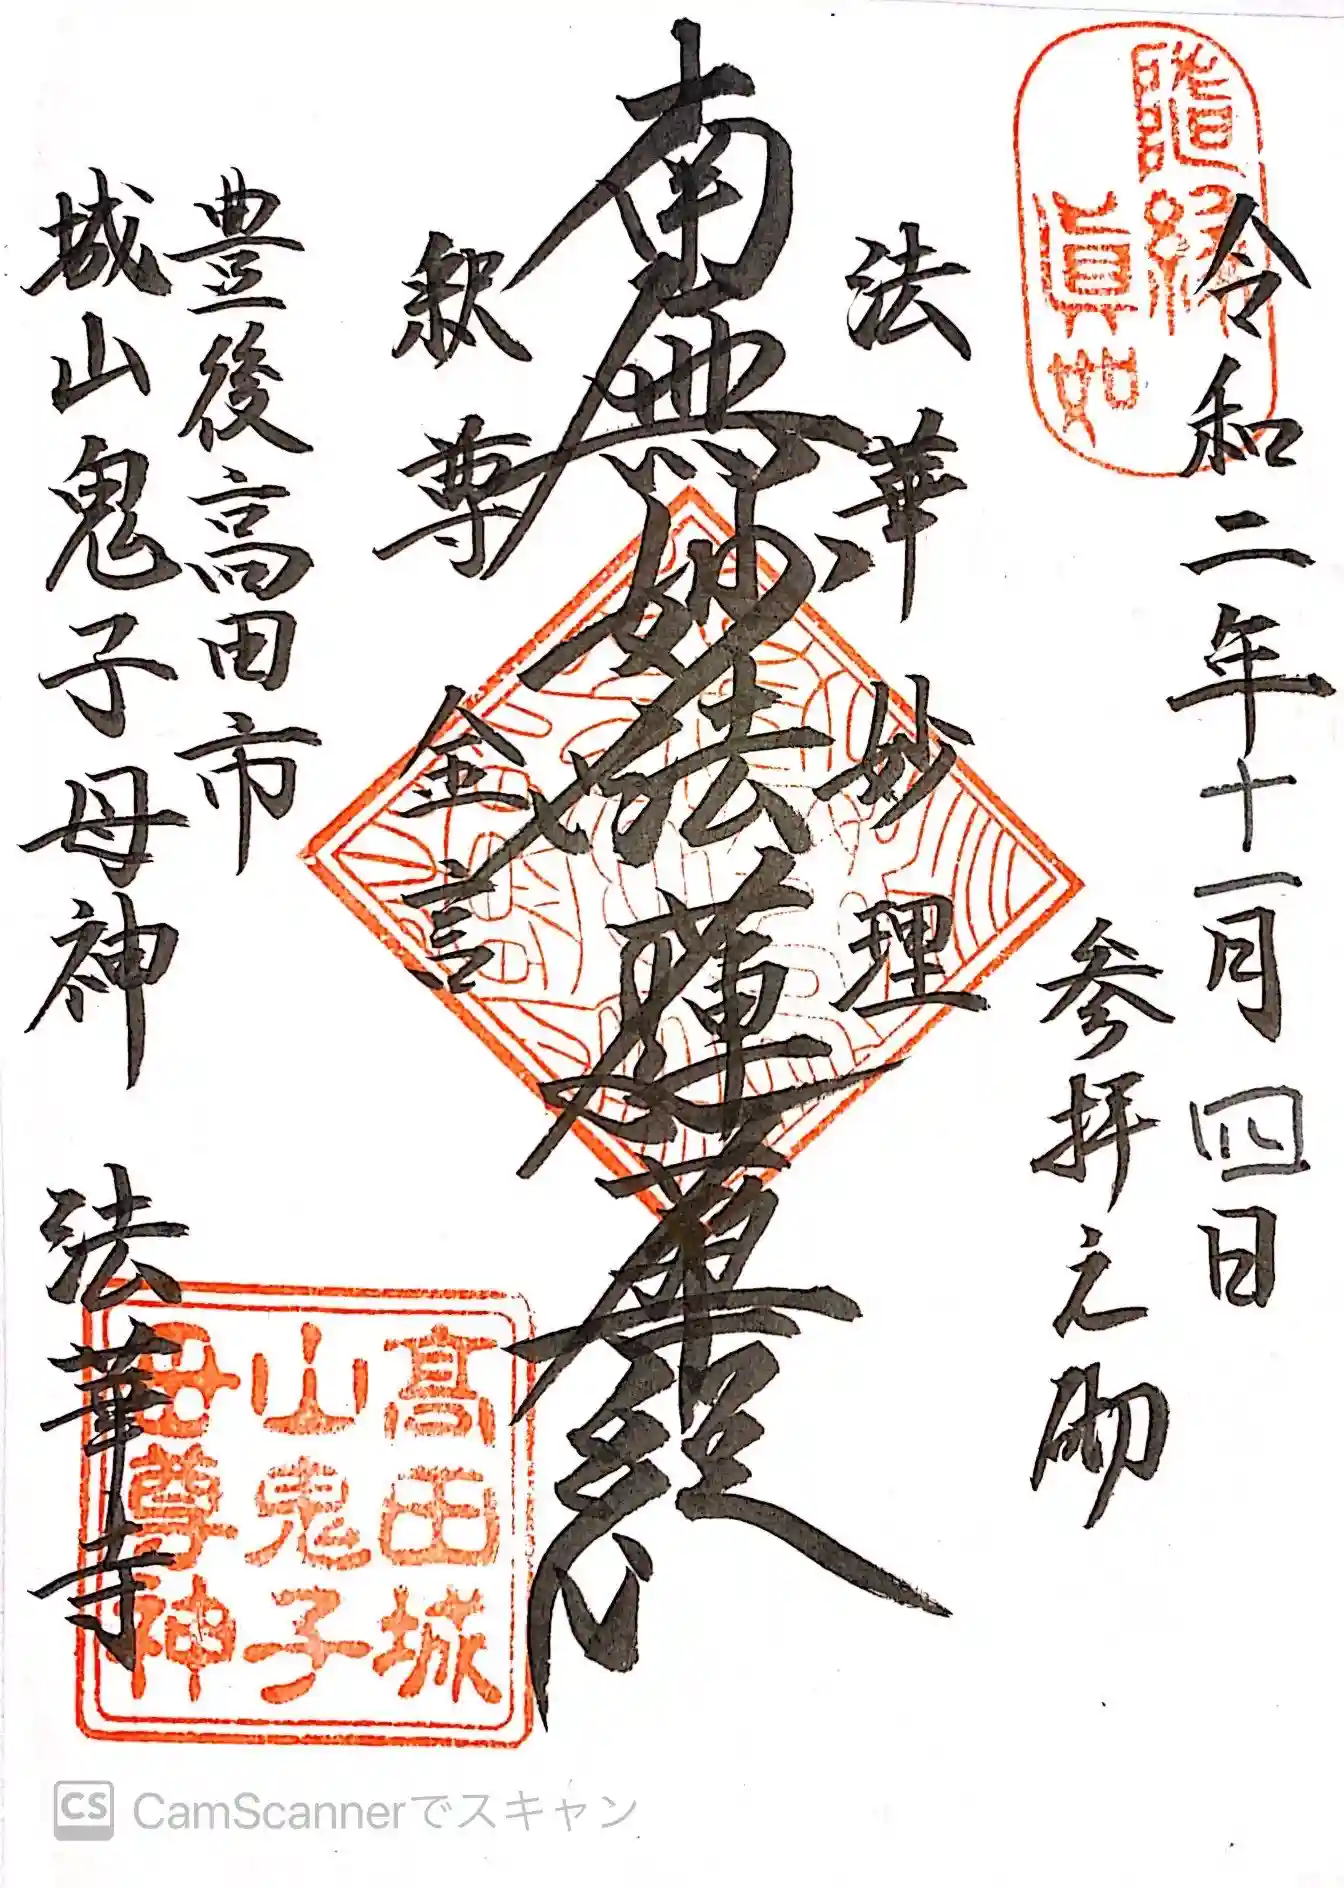 随縁
真如
令和二年十一月四日
参拝之砌
法華妙理
南無妙法蓮華経
釈尊金言
豊後高田市
城山鬼子母神 法華寺
高田城
山鬼子
母尊神
CS CamScannerでスキャン